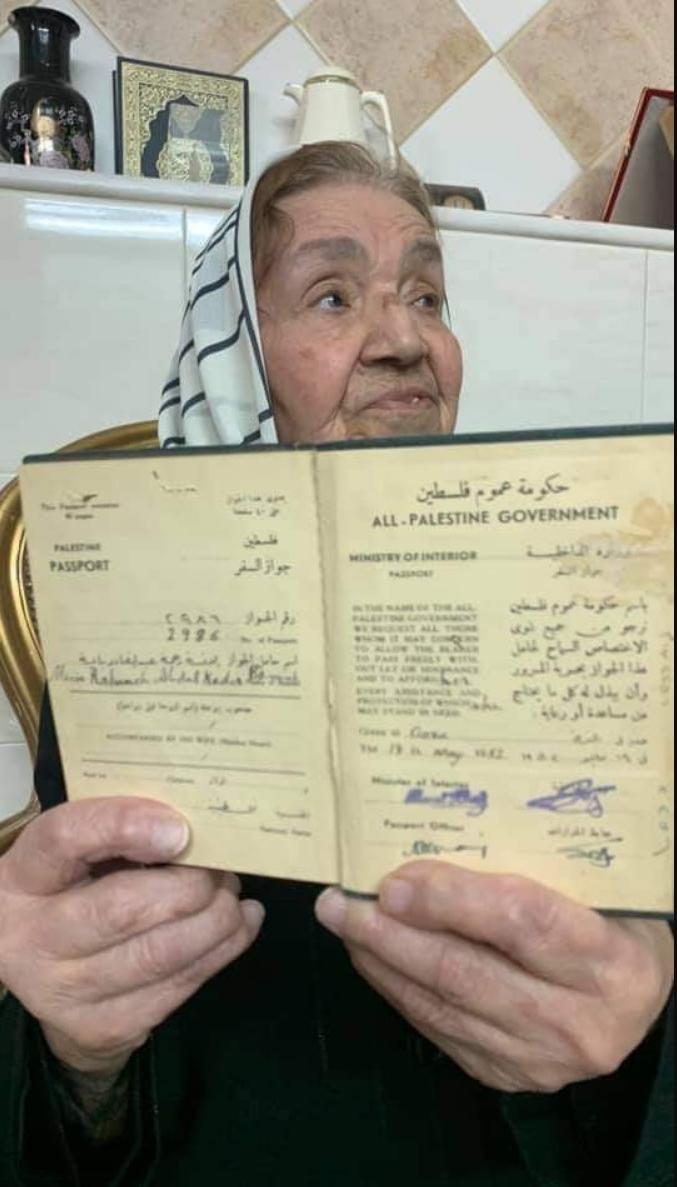 This Passport contains
40 pages
يحتوي هذا الجواز
على ٤٠ صفحة
PALESTINE
PASSPORT
فلسطين
جواز السفر
رقم الجواز ٢٩٨٦
2986 No. of Passport
اسم حامل الجواز
Rahmeh Abdul Kader
ACCOMPANIED BY HIS WIFE (Maiden Name)
Children
حكومة عموم فلسطين
ALL-PALESTINE GOVERNMENT
MINISTRY OF INTERIOR
وزارة الداخلية
PASSPORT
جواز السفر
IN THE NAME OF THE ALL-
PALESTINE GOVERNMENT
WE REQUEST ALL THOSE
WHOM IT MAY CONCERN
TO ALLOW THE BEARER
TO PASS FREELY WITH-
OUT LET OR HINDRANCE
AND TO AFFORD her
EVERY ASSISTANCE AND
PROTECTION OF WHICH she
MAY STAND IN NEED.
باسم حكومة عموم فلسطين
نرجو من جميع ذوى
الاختصاص السماح لحامل
هذا الجواز بحرية المرور
وأن يبذل له كل ما يحتاج
من مساعدة أو رعاية .
Given at Gaza
The 19 th May
Minister of Interior
Passport Officer
ضابط الجوازات